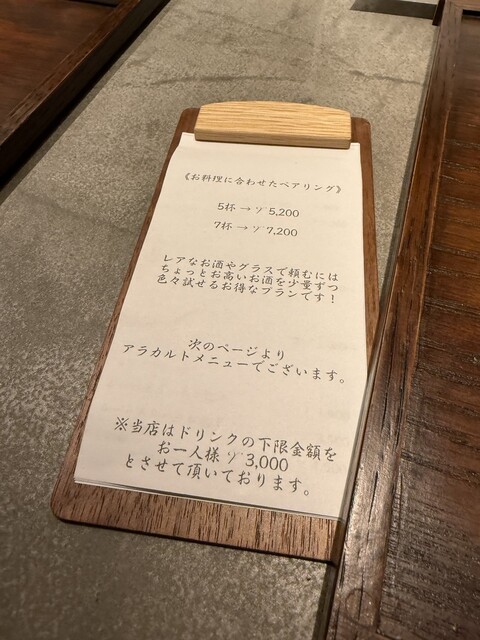 《お料理に合わせたペアリング》
5杯 → ￥5,200
7杯 → ￥7,200
レアなお酒やグラスで頼むには
ちょっとお高いお酒を少量ずつ
色々試せるお得なプランです!
次のページより
アラカルトメニューでございます。
※当店はドリンクの下限金額を
お一人様￥3,000
とさせて頂いております。